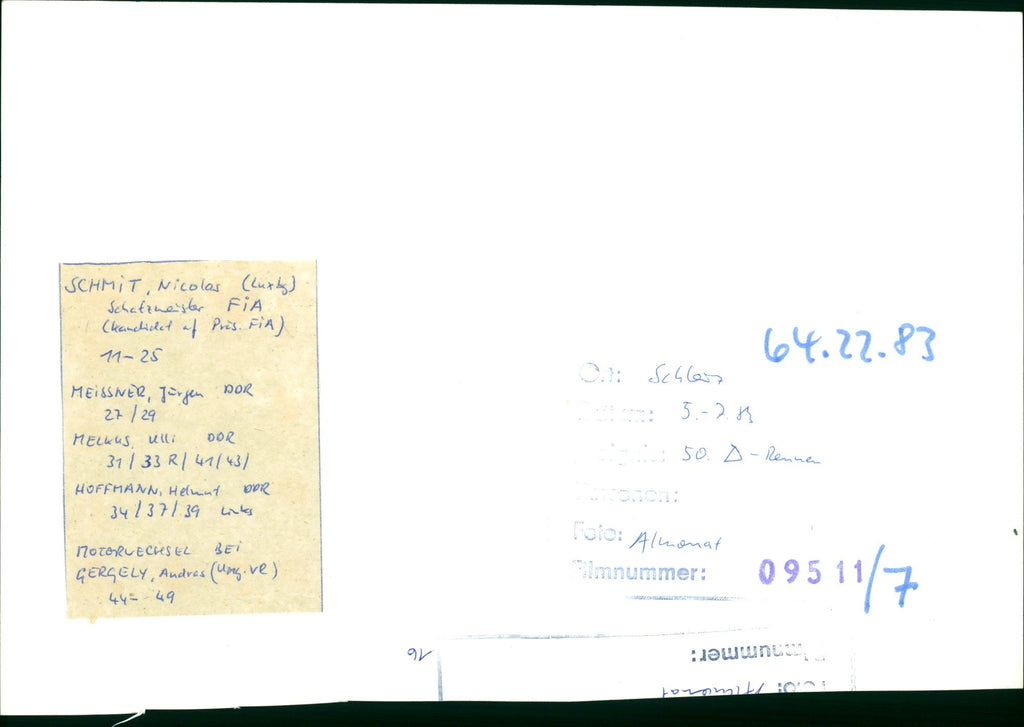 SCHMIT, Nicolas (Luxbg)
Schatzmeister FiA
(Kandidat af Präs. FiA)
11-25
MEISSNER, Jürgen DDR
27/29
MELKUS, Ulli DDR
31/33 R/41/43/
HOFFMANN, Helmut DDR
34/37/39 links
MOTORWECHSEL BEI
GERGELY, Andras (Ung. VR)
44- 49
64.22.83
Ort: Schleiz
Datum: 5.-7. 8
50. Δ-Rennen
Personen:
Foto: Almonat
Filmnummer: 09511/7
16
Filmnummer:
Foto: Almonat